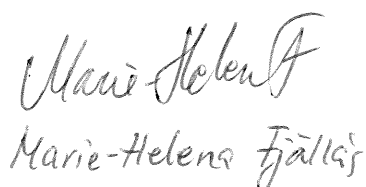 Marie-Helena F
Marie-Helena Fjällås